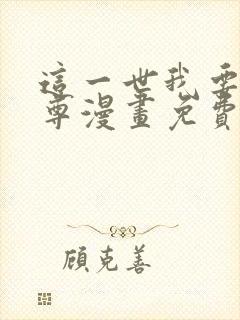 這一世我要
尊漫畫免費
顧克善